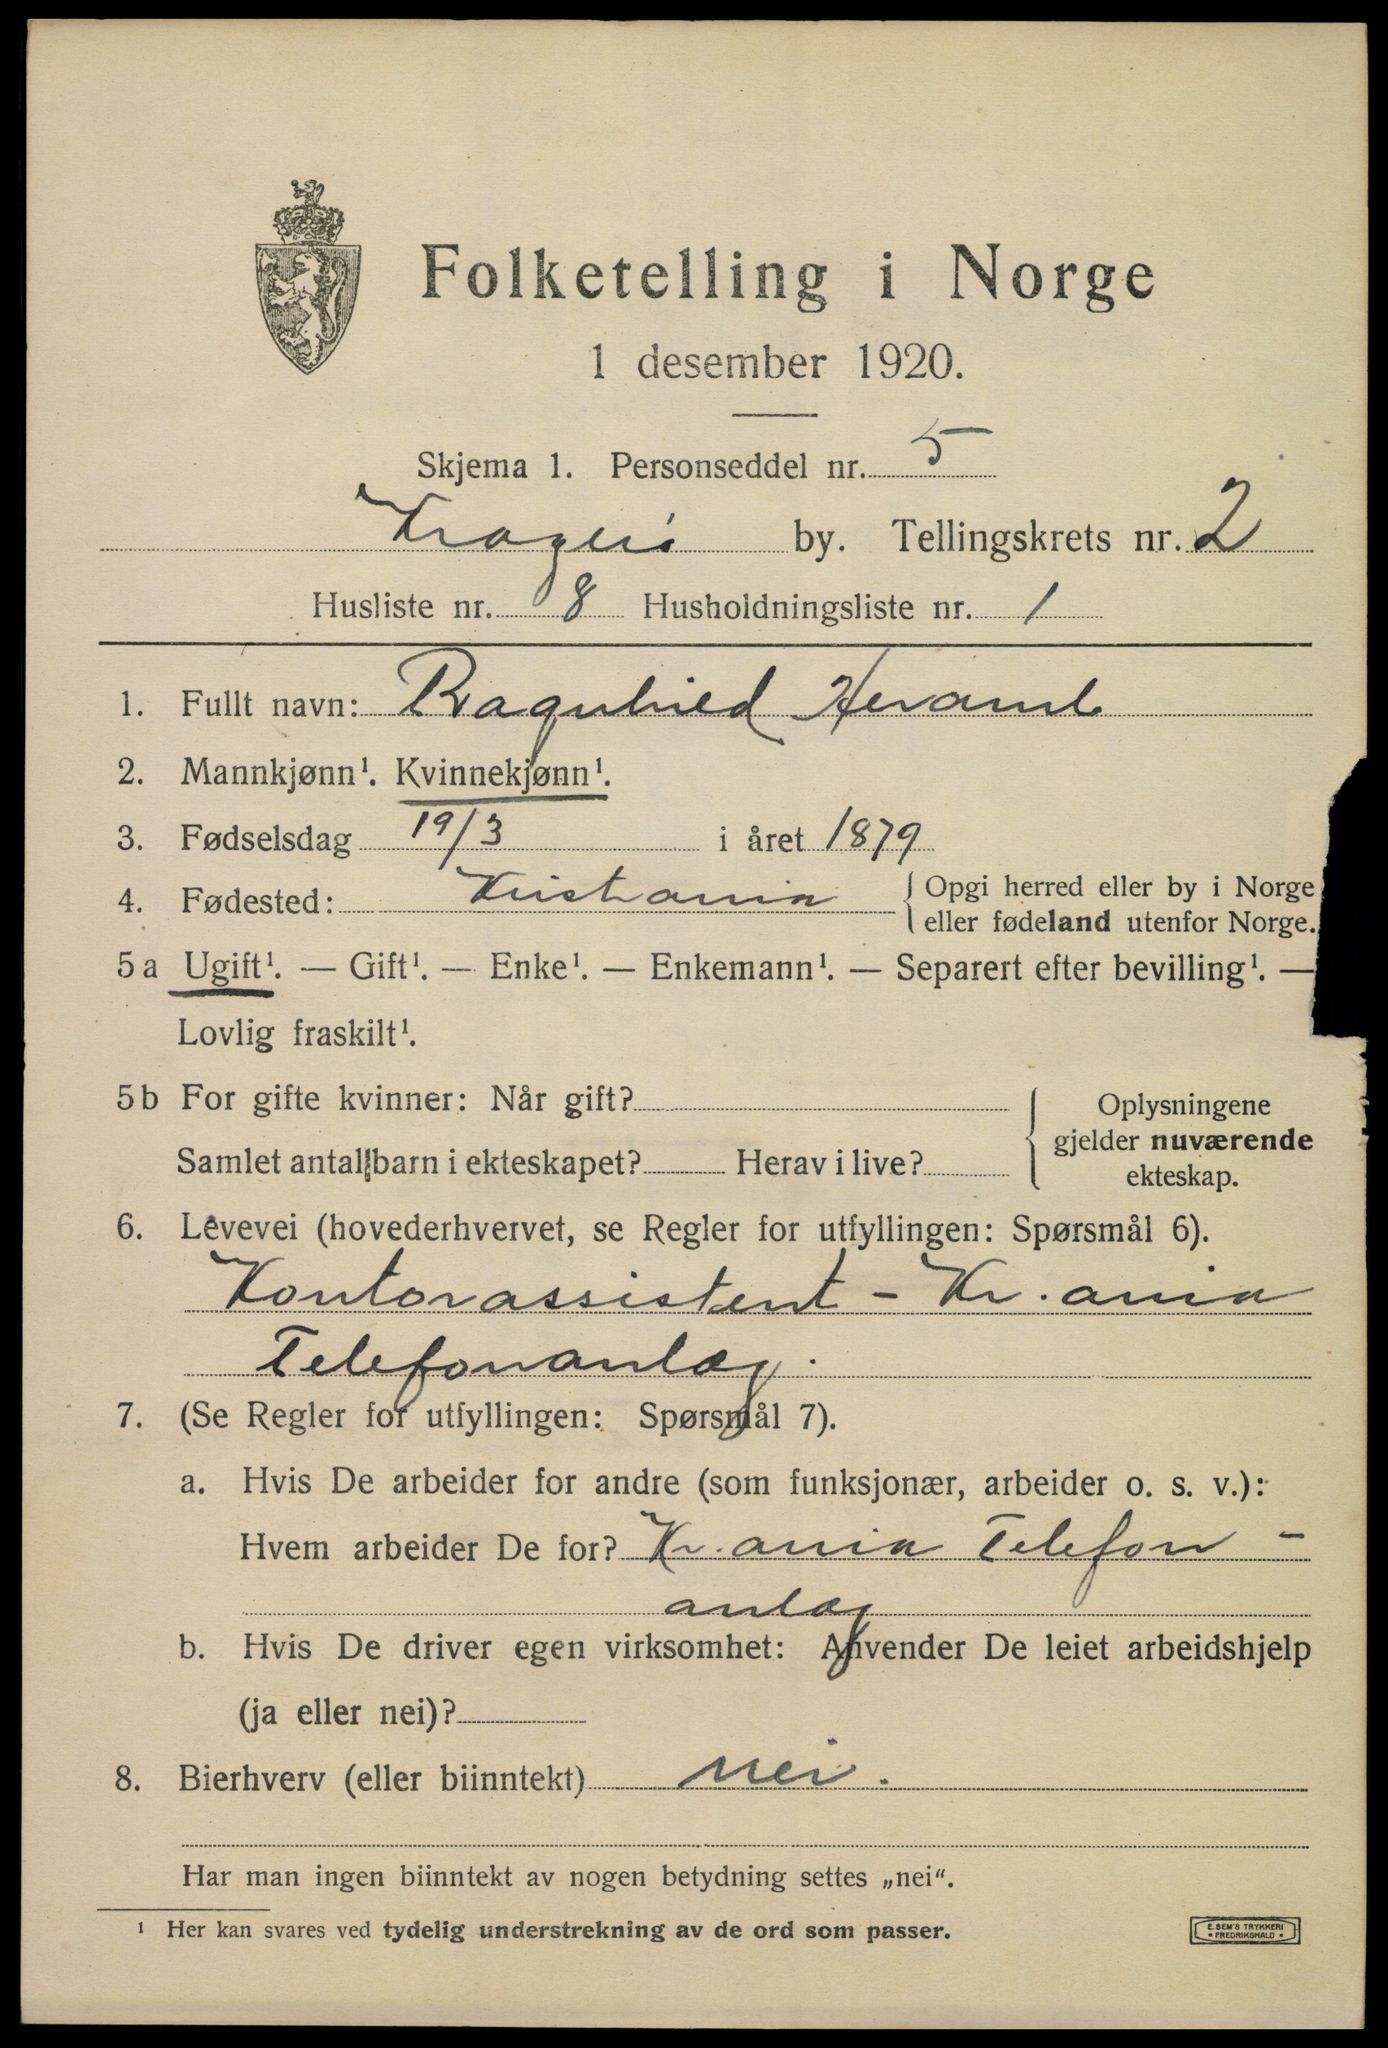 Folketelling i Norge
1 desember 1920.
Skjema 1. Personseddel nr. 5
Kragerö by. Tellingskrets nr. 2
Husliste nr. 8 Husholdningsliste nr. 1
1. Fullt navn: Ragnhild
2. Mannkjønn¹. Kvinnekjønn¹.
3. Fødselsdag 19/3 i året 1879
4. Fødested: Kristiania { Opgi herred eller by i Norge
eller fødeland utenfor Norge.
5 a Ugift¹. — Gift¹. — Enke¹. — Enkemann¹. — Separert efter bevilling¹. —
Lovlig fraskilt¹.
5 b For gifte kvinner: Når gift?
Samlet antall barn i ekteskapet? Herav i live?
{ Oplysningene
gjelder nuværende
ekteskap.
6. Levevei (hovederhvervet, se Regler for utfyllingen: Spørsmål 6).
Kontorassistent - Kr.ania
Telefonanlæg.
7. (Se Regler for utfyllingen: Spørsmål 7).
a. Hvis De arbeider for andre (som funksjonær, arbeider o. s. v.):
Hvem arbeider De for? Kr.ania Telefon -
anlæg
b. Hvis De driver egen virksomhet: Anvender De leiet arbeidshjelp
(ja eller nei)?
8. Bierhverv (eller biinntekt) nei.
Har man ingen biinntekt av nogen betydning settes „nei“.
¹ Her kan svares ved tydelig understrekning av de ord som passer.
E. SEM'S TRYKKERI
FREDRIKSHALD